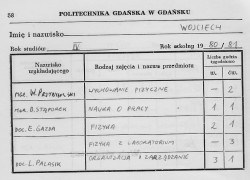 58 POLITECHNIKA GDAŃSKA W GDAŃSKU
WOJCIECH
Imię i nazwisko
Rok studiów IV Rok szkolny 19 80/81
Nazwisko wykładającego Rodzaj zajęcia i nazwa przedmiotu Liczba godzin tygodniowo
w. ćw.
MGR. W. WYCHOWANIE FIZYCZNE — 2
DOC. B. STĘPOREK NAUKA O PRACY 1 -
DOC. E. GAZDA FIZYKA 2 1
FIZYKA LABORATORIUM — 3
DOC. L. PALASIK ORGANIZACJA I ZARZĄDZANIE 3 1